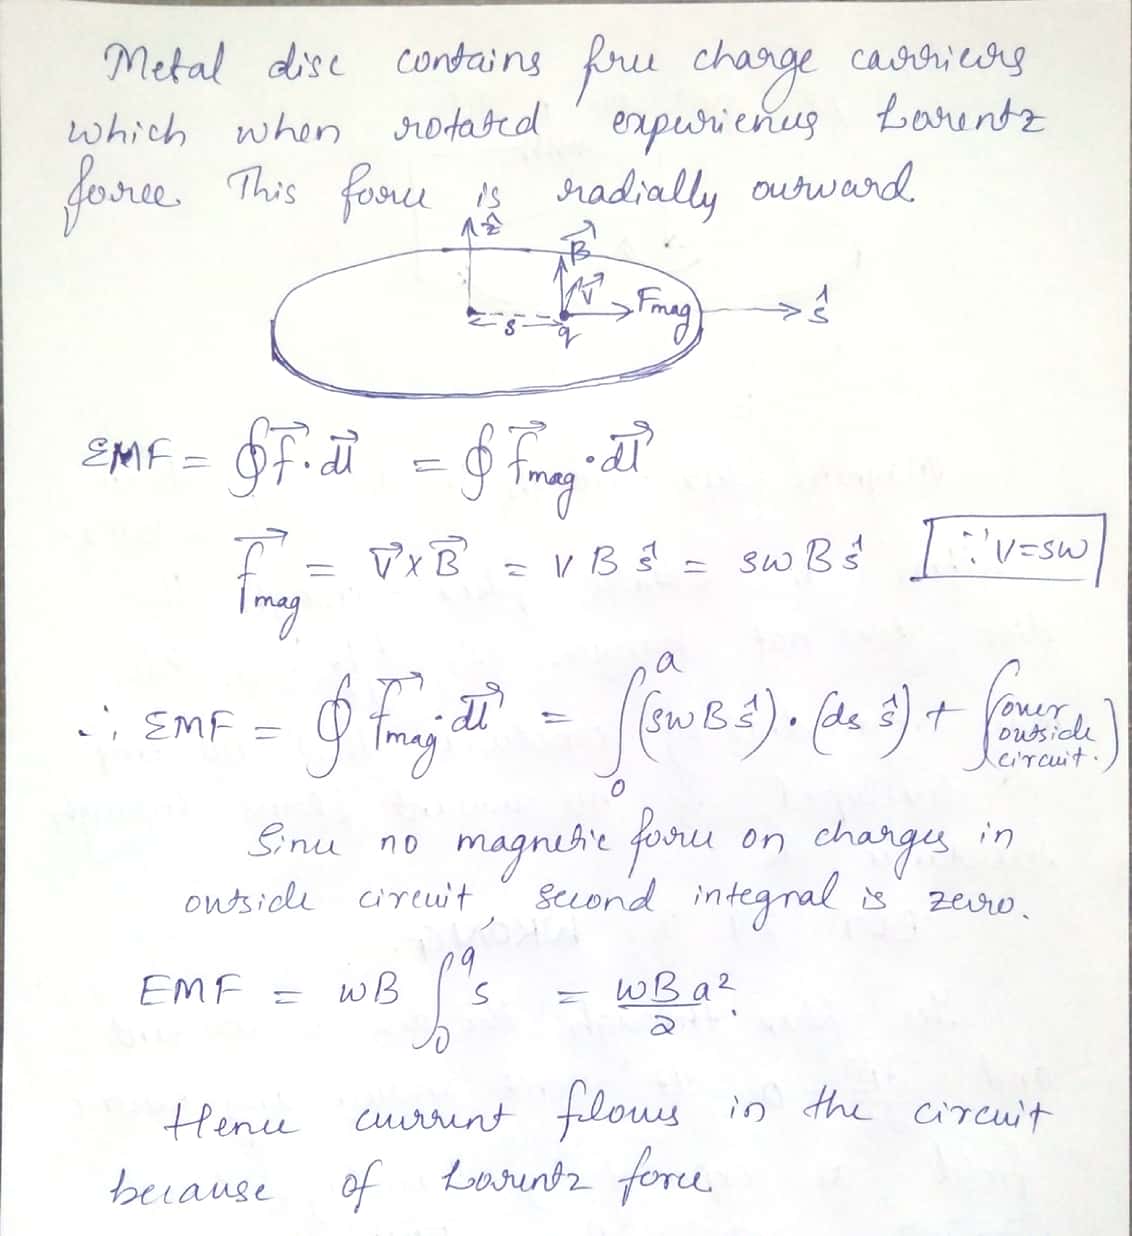 Metal disc contains free charge carriers
which when rotated experiences Lorentz
force. This force is radially outward.
ẑ
B⃗
v⃗
F mag
ŝ
s
q
EMF = ∮ f⃗ · dl⃗ = ∮ f⃗mag · dl⃗
f⃗mag = v⃗ × B⃗ = v B ŝ = sω B ŝ [∵ v = sω]
∴ EMF = ∮ f⃗mag · dl⃗ = ∫₀ᵃ (sωB ŝ) · (ds ŝ) + ∫(over outside circuit.)
Since no magnetic force on charges in
outside circuit, second integral is zero.
EMF = ωB ∫₀ᵃ s = ωBa²/2.
Hence current flows in the circuit
because of Lorentz force.